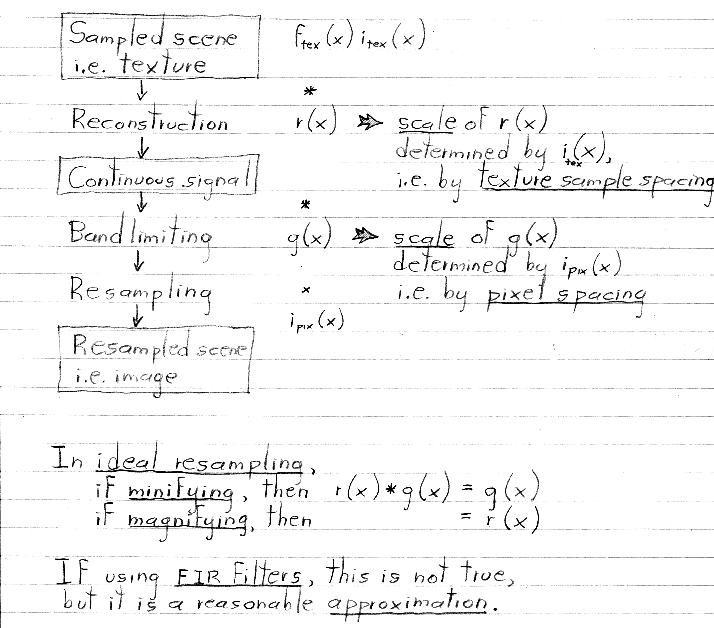 Sampled scene f_tex(x) i_tex(x)
i.e. texture
↓ *
Reconstruction r(x) ⇒ scale of r(x)
↓ determined by i_tex(x),
Continuous signal i.e. by texture sample spacing
↓ *
Band limiting g(x) ⇒ scale of g(x)
↓ determined by i_pix(x)
Resampling × i.e. by pixel spacing
↓ i_pix(x)
Resampled scene
i.e. image
In ideal resampling,
if minifying, then r(x) * g(x) = g(x)
if magnifying, then = r(x)
If using FIR filters, this is not true,
but it is a reasonable approximation.